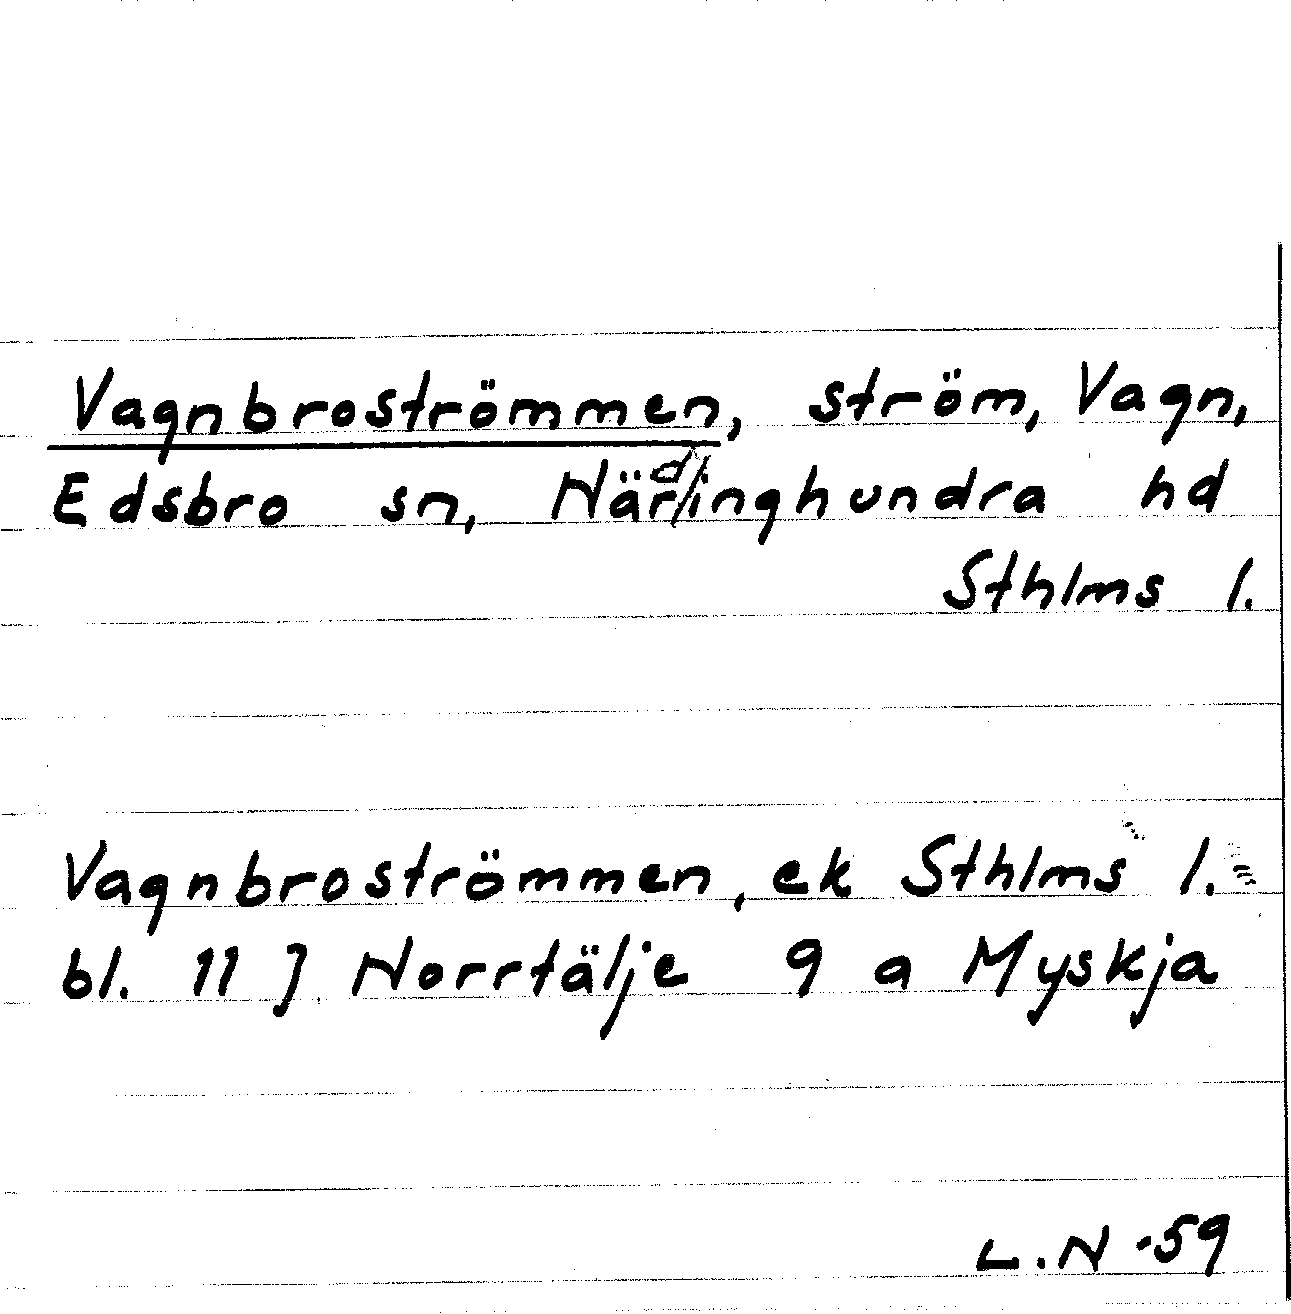 Vagnbroströmmen, ström, Vagn,
Edsbro sn, Närdinghundra hd
Sthlms l.
Vagnbroströmmen, ek Sthlms l.
bl. 11 J Norrtälje 9 a Myskja
L.N -59